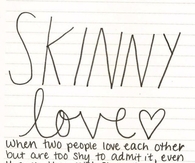 SKINNY
love♡
When two people love each other
but are too shy to admit it, even